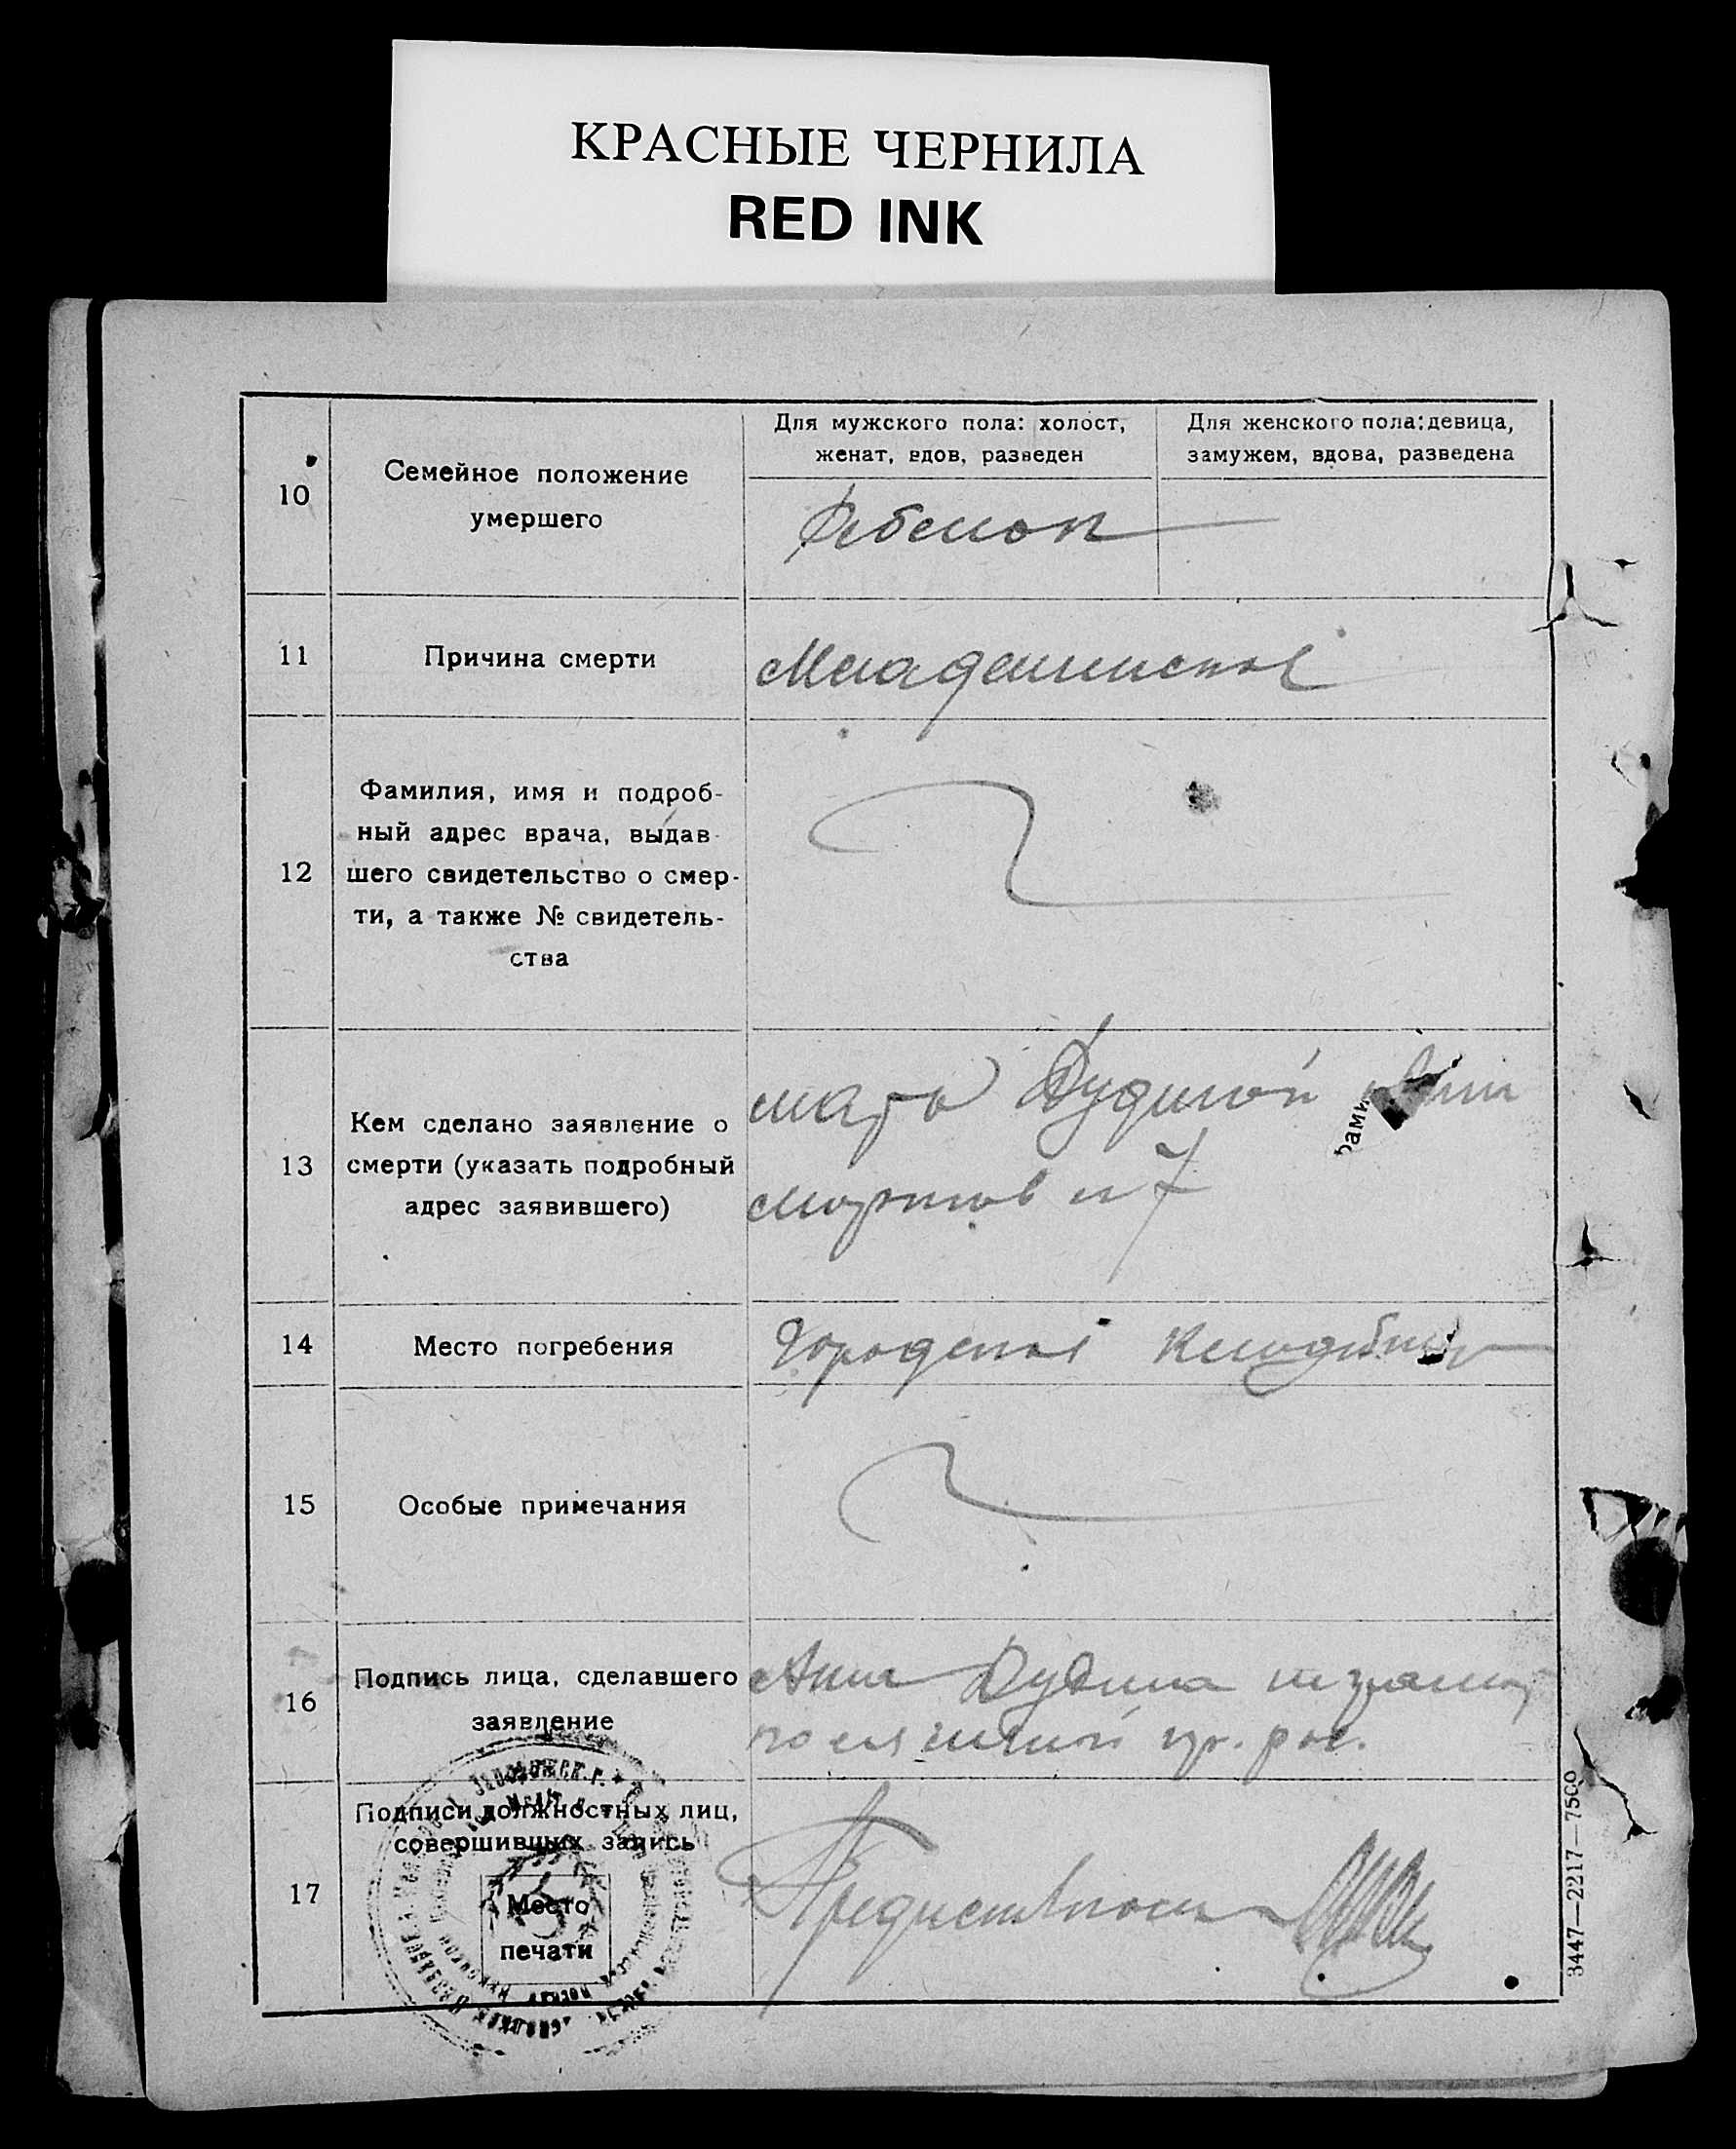 КРАСНЫЕ ЧЕРНИЛА
RED INK
10
Семейное положение
умершего
Для мужского пола: холост,
женат, вдов, разведен
Для женского пола: девица,
замужем, вдова, разведена
Ребенок
11
Причина смерти
Младенческая
12
Фамилия, имя и подроб-
ный адрес врача, выдав-
шего свидетельство о смер-
ти, а также № свидетель-
ства
13
Кем сделано заявление о
смерти (указать подробный
адрес заявившего)
мать Дудиной
7
14
Место погребения
Городское кладбище
15
Особые примечания
16
Подпись лица, сделавшего
заявление
Анна Дудина
17
Подписи должностных лиц,
совершивших запись
Место
печати
3447—2217—7500